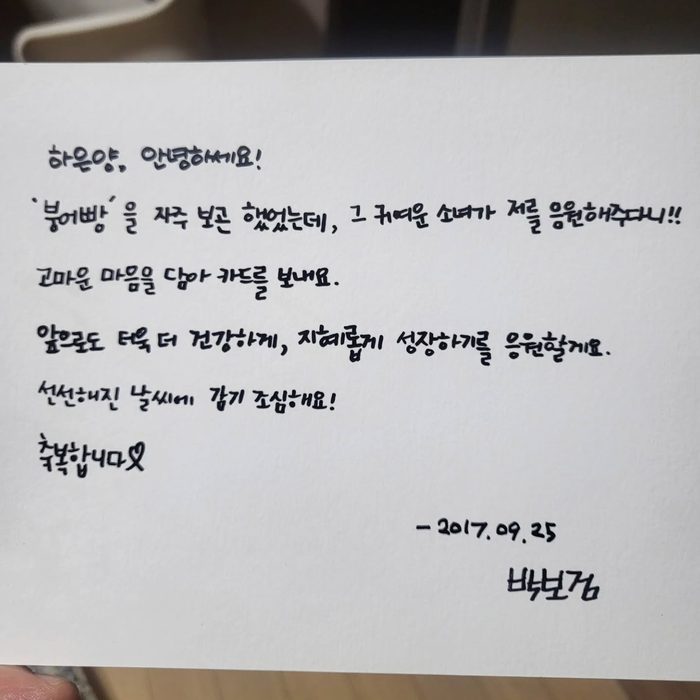 하은양, 안녕하세요!
'붕어빵'을 자주 보곤 했었는데, 그 귀여운 소녀가 저를 응원해주다니!!
고마운 마음을 담아 카드를 보내요.
앞으로도 더욱 더 건강하게, 지혜롭게 성장하기를 응원할게요.
선선해진 날씨에 감기 조심해요!
축복합니다♡
- 2017.09.25
박보검